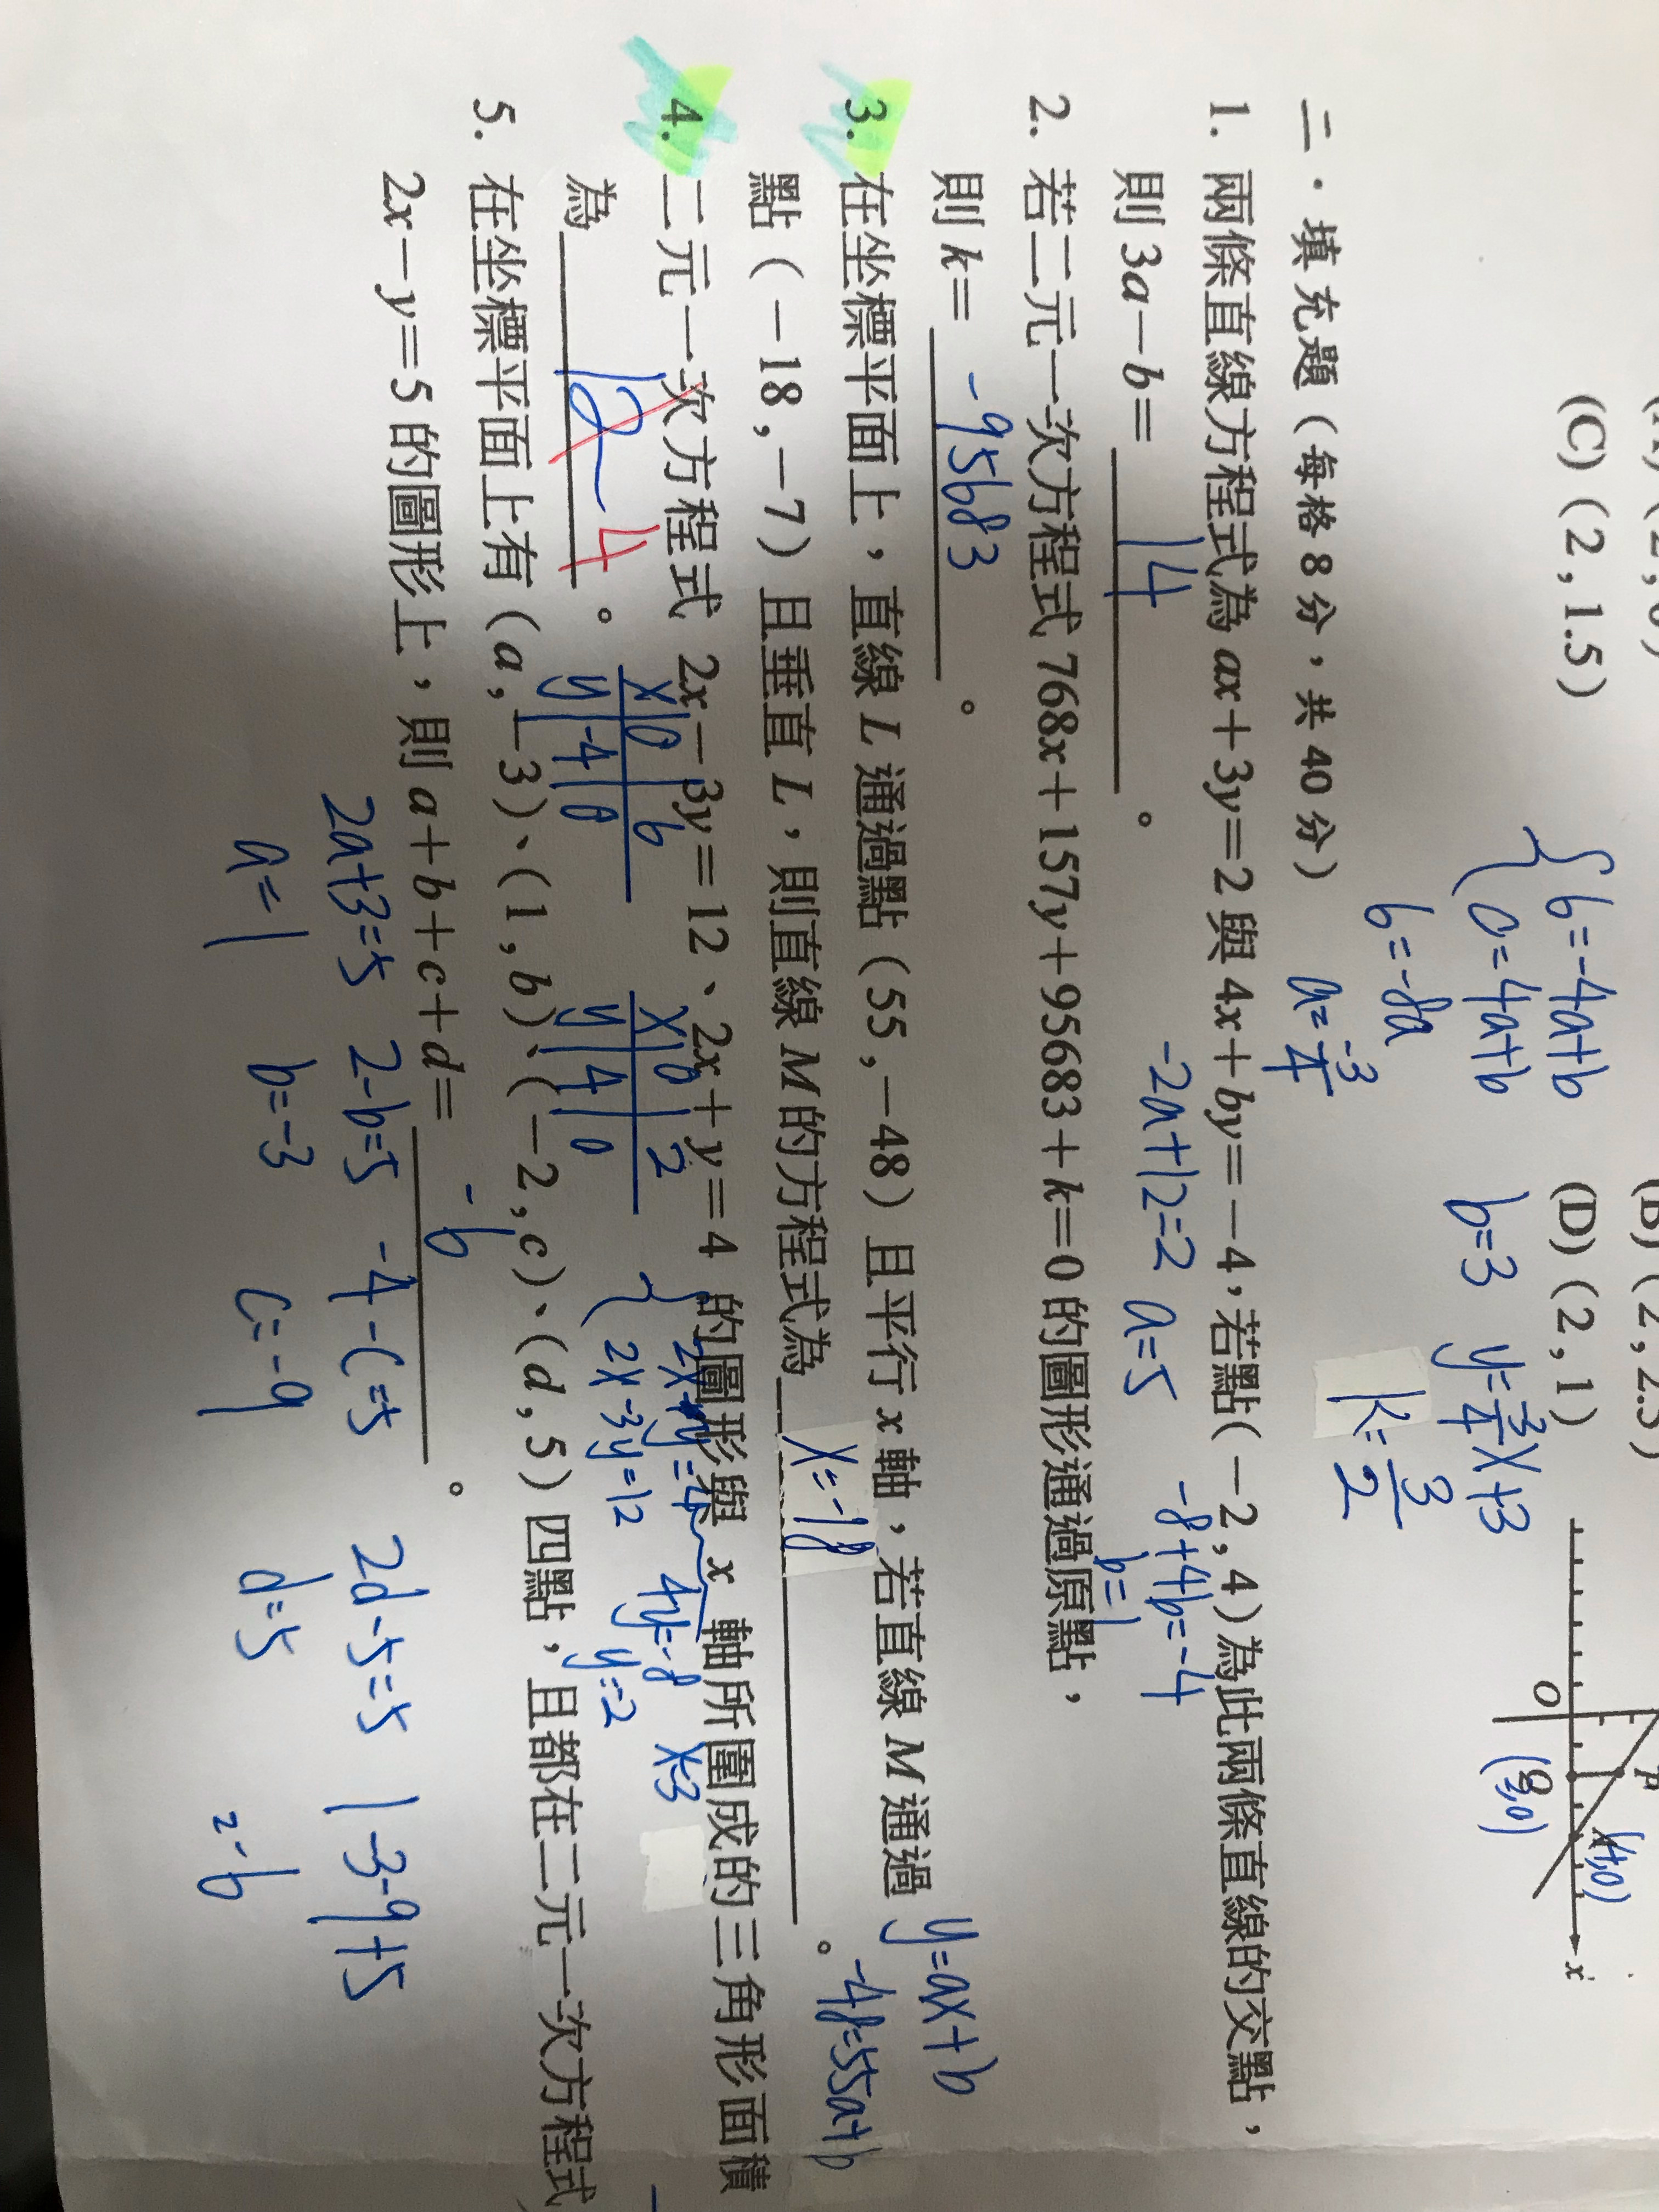 (C) (2 , 1.5)
(D) (2 , 1)
{6=-4a+b
0=4a+b
b=-8a
a=-3/4
b=3
y=-3/4x+3
k=3/2
O
Q
x
(2,0)
(4,0)
二・填充題（每格 8 分，共 40 分）
1. 兩條直線方程式為 ax＋3y＝2 與 4x＋by＝－4，若點(－2 , 4)為此兩條直線的交點，
則 3a－b＝ 14 。
-2a+12=2 a=5
-8+4b=-4
b=1
2. 若二元一次方程式 768x＋157y＋95683＋k＝0 的圖形通過原點，
則 k＝ -95683 。
3. 在坐標平面上，直線 L 通過點（55 , －48）且平行 x 軸，若直線 M 通過
點（－18 , －7）且垂直 L，則直線 M 的方程式為 x=-18 。
y=ax+b
-48=55a+b
4. 二元一次方程式 2x－3y＝12、2x＋y＝4 的圖形與 x 軸所圍成的三角形面積
為 12 4 。
x 0 6
y -4 0
x 0 2
y 4 0
{2x+y=4
2x-3y=12
4y=-8
y=-2
x=3
5. 在坐標平面上有（a , －3）、（1 , b）、（－2 , c）、（d , 5）四點，且都在二元一次方程式
2x－y＝5 的圖形上，則 a＋b＋c＋d＝ -6 。
2a+3=5 2-b=5 -4-c=5 2d-5=5 1-3-9+5
a=1 b=-3 c=-9 d=5 =-6